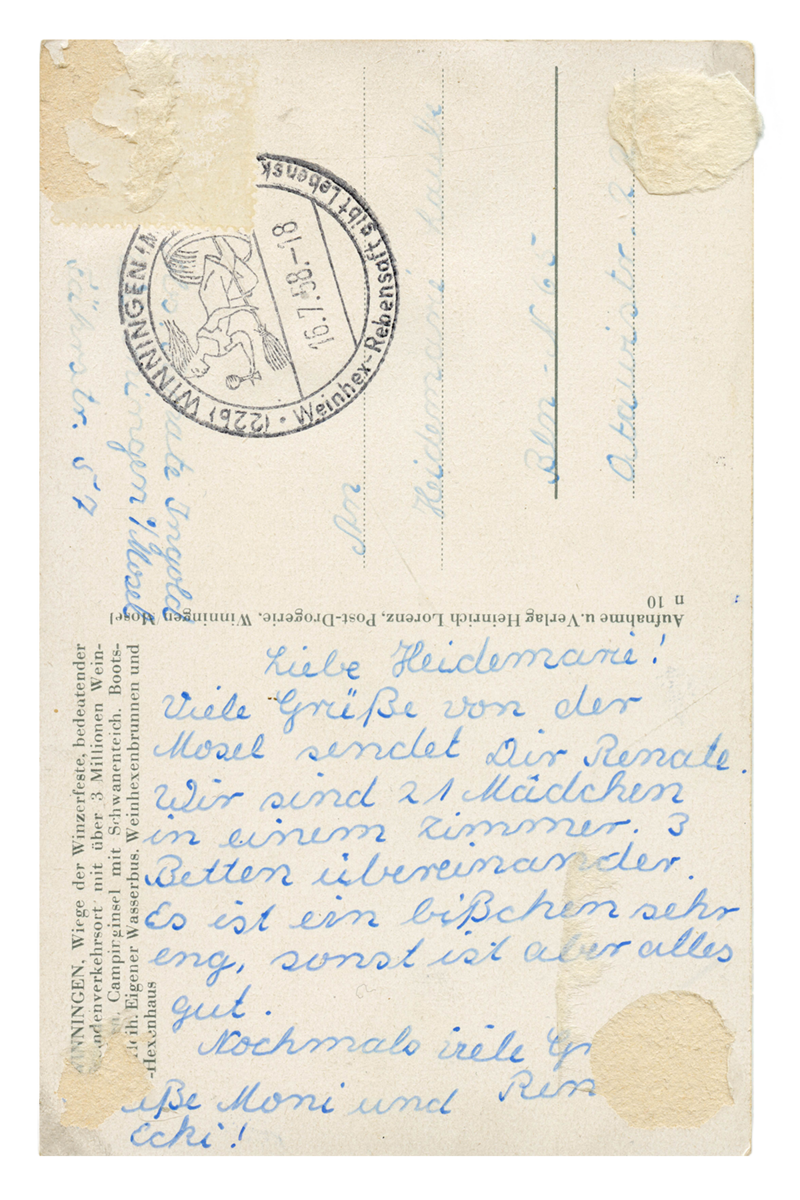 (22b) WINNINGEN (M
Weinhex-Rebensaft gibt Lebensk
16.7.58.-18
Ingold
ingen/Mosel
Fährstr. 57
An
Heidemarie
Bln-N 65
Otawistr.
Aufnahme u. Verlag Heinrich Lorenz, Post-Drogerie, Winningen Mosel
n 10
INNINGEN, Wiege der Winzerfeste, bedeatender
ndenverkehrsort mit über 3 Millionen Wein-
Campinginsel mit Schwanenteich. Boots-
leih. Eigener Wasserbus. Weinhexenbrunnen und
-Hexenhaus
Liebe Heidemarie!
Viele Grüße von der
Mosel sendet Dir Renate.
Wir sind 21 Mädchen
in einem Zimmer. 3
Betten übereinander.
Es ist ein bißchen sehr
eng, sonst ist aber alles
gut.
Nochmals viele Gr
Ren
üße Moni und
Ecki!